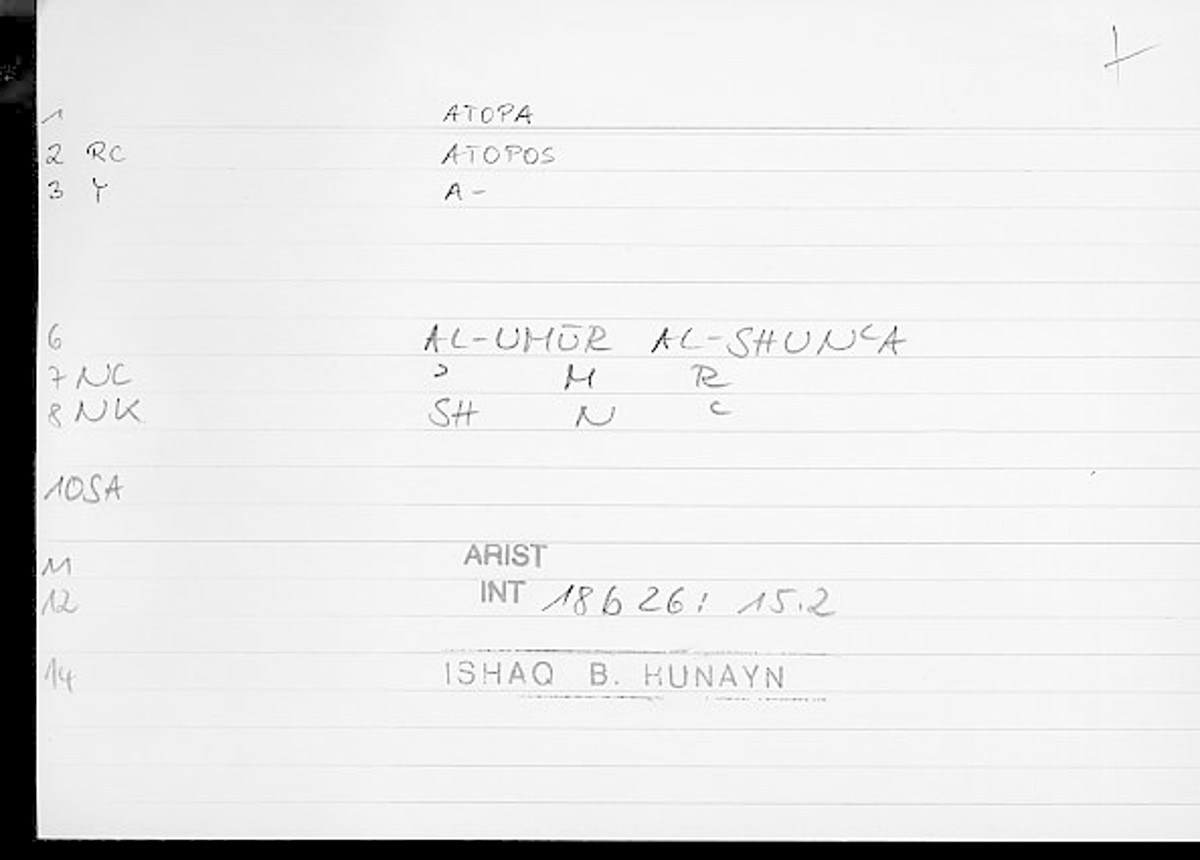 1 ATOPA
2 RC ATOPOS
3 Y A-
6 AL-UMŪR AL-SHUNʿA
7 NC ʾ M R
8 NK SH N ʿ
10SA
11 ARIST
12 INT 18b26; 15.2
14 ISHAQ B. HUNAYN